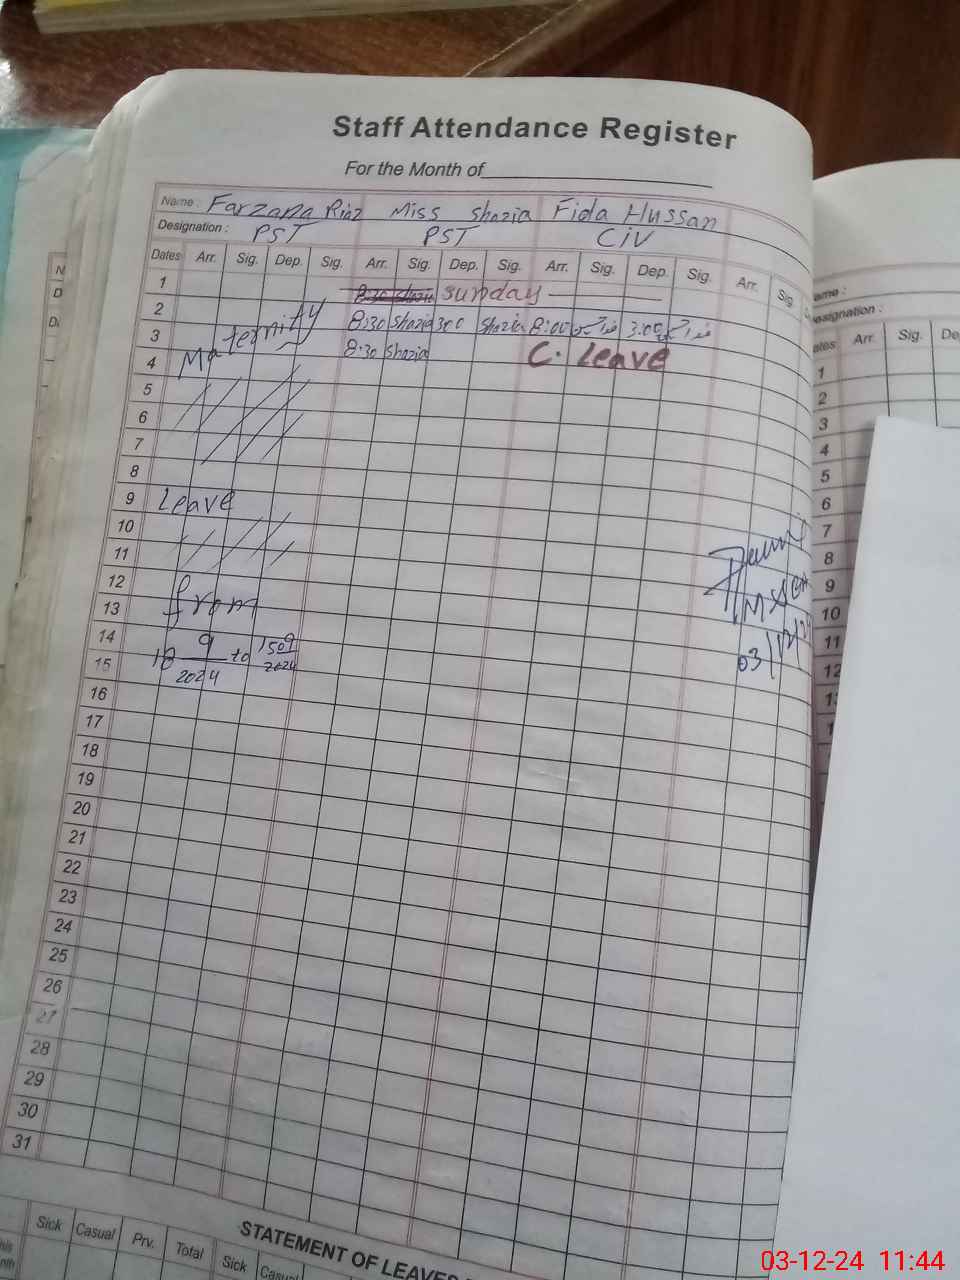 Staff Attendance Register
For the Month of
Name : Farzana Riaz Miss Shazia Fida Hussan
Designation : PST PST CiV
Dates Arr. Sig. Dep. Sig. Arr. Sig. Dep. Sig. Arr. Sig. Dep. Sig. Arr. Sig.
1 8:30 Shazia Sunday
2 8:30 Shazia 3:00 Shazia 8:00 3:00
3 Maternity 8:30 Shazia C. Leave
4
5
6
7
8
9 Leave
10
11
12
13 from
14
15 18 9 2024 to 1509 2024
16
17
18
19
20
21
22
23
24
25
26
27
28
29
30
31
03/12/24
STATEMENT OF LEAVES
Sick Casual Prv. Total Sick Casual
ame :
esignation :
ates Arr. Sig.
1
2
3
4
5
6
7
8
9
10
11
12
03-12-24 11:44